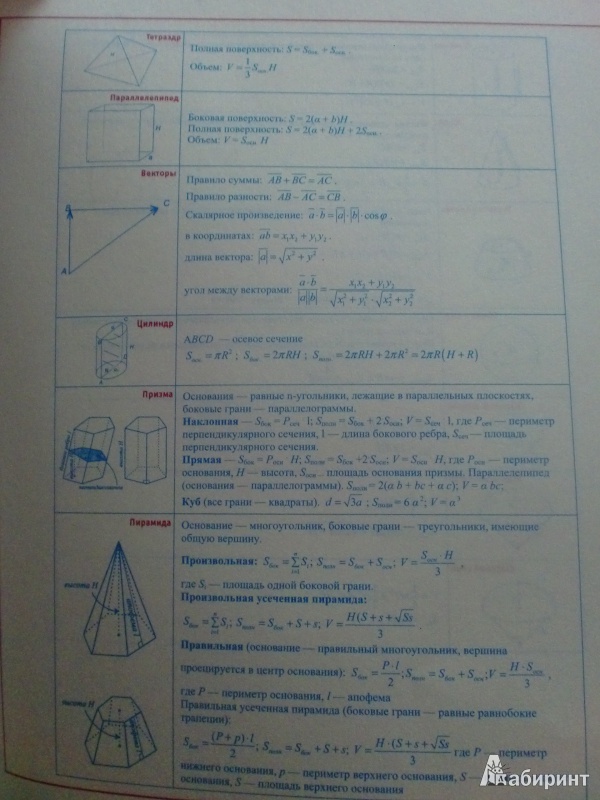 Тетраэдр
Полная поверхность: S = Sбок + Sосн .
Объем: V = 1/3 Sосн H
Параллелепипед
H
a
Боковая поверхность: S = 2(a + b)H .
Полная поверхность: S = 2(a + b)H + 2Sосн .
Объем: V = Sосн H
Векторы
B
C
A
Правило суммы: AB + BC = AC .
Правило разности: AB − AC = CB .
Скалярное произведение: a · b = |a| · |b| · cos φ .
в координатах: ab = x₁x₂ + y₁y₂ .
длина вектора: |a| = √(x² + y²) .
угол между векторами: (a · b)/(|a||b|) = (x₁x₂ + y₁y₂)/(√(x₁² + y₁²) · √(x₂² + y₂²))
Цилиндр
ABCD — осевое сечение
Sосн = πR² ; Sбок = 2πRH ; Sполн = 2πRH + 2πR² = 2πR(H + R)
Призма
Основания — равные n-угольники, лежащие в параллельных плоскостях,
боковые грани — параллелограммы.
Наклонная — Sбок = Pсеч l; Sполн = Sбок + 2 Sосн, V = Sсеч l, где Pсеч — периметр
перпендикулярного сечения, l — длина бокового ребра, Sсеч — площадь
перпендикулярного сечения.
Прямая — Sбок = Pосн H; Sполн = Sбок +2 Sосн; V = Sосн H, где Pосн — периметр
основания, H — высота, Sосн – площадь основания призмы. Параллелепипед
(основания — параллелограммы). Sполн = 2(a b + bc + a c); V = a bc;
Куб (все грани — квадраты). d = √3a ; Sполн = 6 a²; V = a³
Пирамида
высота H
апофема
Основание — многоугольник, боковые грани — треугольники, имеющие
общую вершину.
Произвольная: Sбок = Σ Sᵢ; Sполн = Sбок + Sосн; V = (Sосн · H)/3 ,
где Sᵢ — площадь одной боковой грани.
Произвольная усеченная пирамида:
Sбок = Σ Sᵢ; Sполн = Sбок + S + s; V = H(S + s + √Ss)/3 .
Правильная (основание — правильный многоугольник, вершина
проецируется в центр основания): Sбок = (P · l)/2 ; Sполн = Sбок + Sосн; V = (H · Sосн)/3 ,
где P — периметр основания, l — апофема
высота H
Правильная усеченная пирамида (боковые грани — равные равнобокие
трапеции):
Sбок = ((P + p) · l)/2 ; Sполн = Sбок + S + s; V = H · (S + s + √Ss)/3 где P — периметр
нижнего основания, p — периметр верхнего основания, S —
основания, S — площадь верхнего основания
Лабиринт